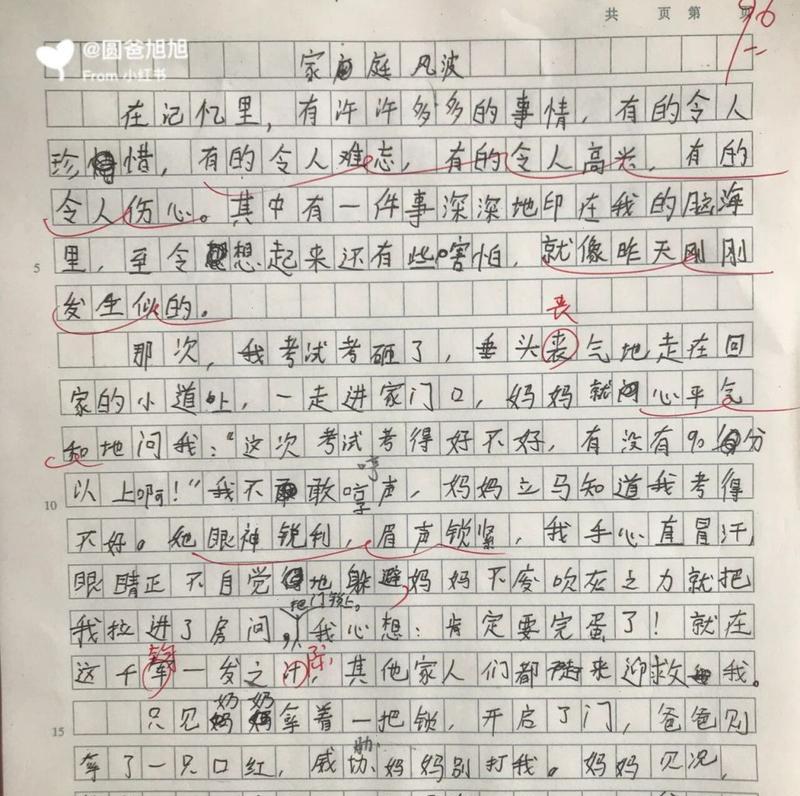 共 页 第 页
96
@圆爸旭旭
From 小红书
家庭风波
在记忆里，有许许多多的事情，有的令人
珍惜，有的令人难忘，有的令人高兴，有的
令人伤心。其中有一件事深深地印在我的脑海
里，至令想起来还有些害怕，就像昨天刚刚
5
发生似的。
丧
那次，我考试考砸了，垂头丧气地走在回
家的小道上，一走进家门口，妈妈就心平气
和地问我：“这次考试考得好不好，有没有90分
以上啊！”我不敢哼声，妈妈立马知道我考得
10
不好。她眼神锐利，眉声锁紧，我手心直冒汗，
眼睛正不自觉地躲避，妈妈不废吹灰之力就把
把门锁上。
我拉进了房间，我心想：肯定要完蛋了！就在
这千一发之，其他家人们都来迎救我。
只见奶奶拿着一把锁，开启了门，爸爸则
15
拿了一只口红，威切妈妈别打我。妈妈见况，